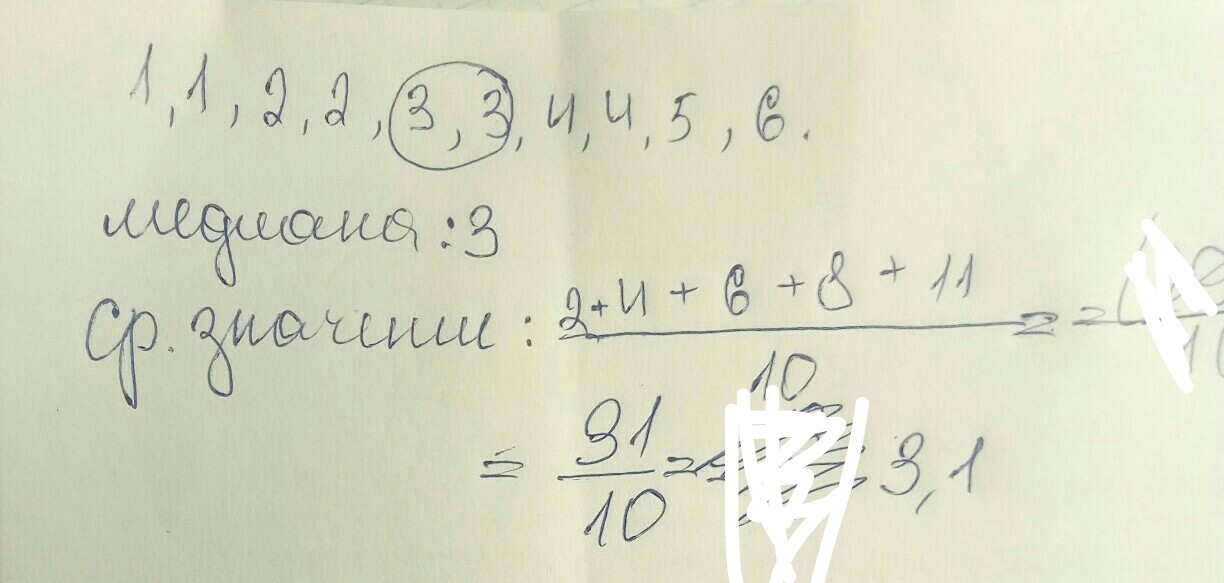 1, 1, 2, 2, 3, 3, 4, 4, 5, 6.
медиана: 3
Ср. значении: 2+4+6+8+11 / 10 = =
= 31/10 = 3,1